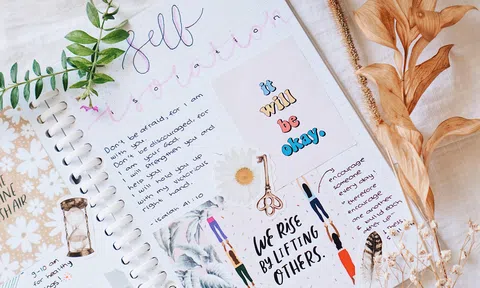 self
isolation
Don't be afraid, for I am
with you.
Don't be discouraged, for
I am your God.
I will strengthen you and
help you
I will hold you up
with my victorious
right hand.
Isaiah 41:10
it
will
be
okay.
WE RISE
BY LIFTING
OTHERS.
encourage
someone
every day!
therefore
encourage
one another
& build each
other up
NE
SHAIR
9-10 am
for healthy